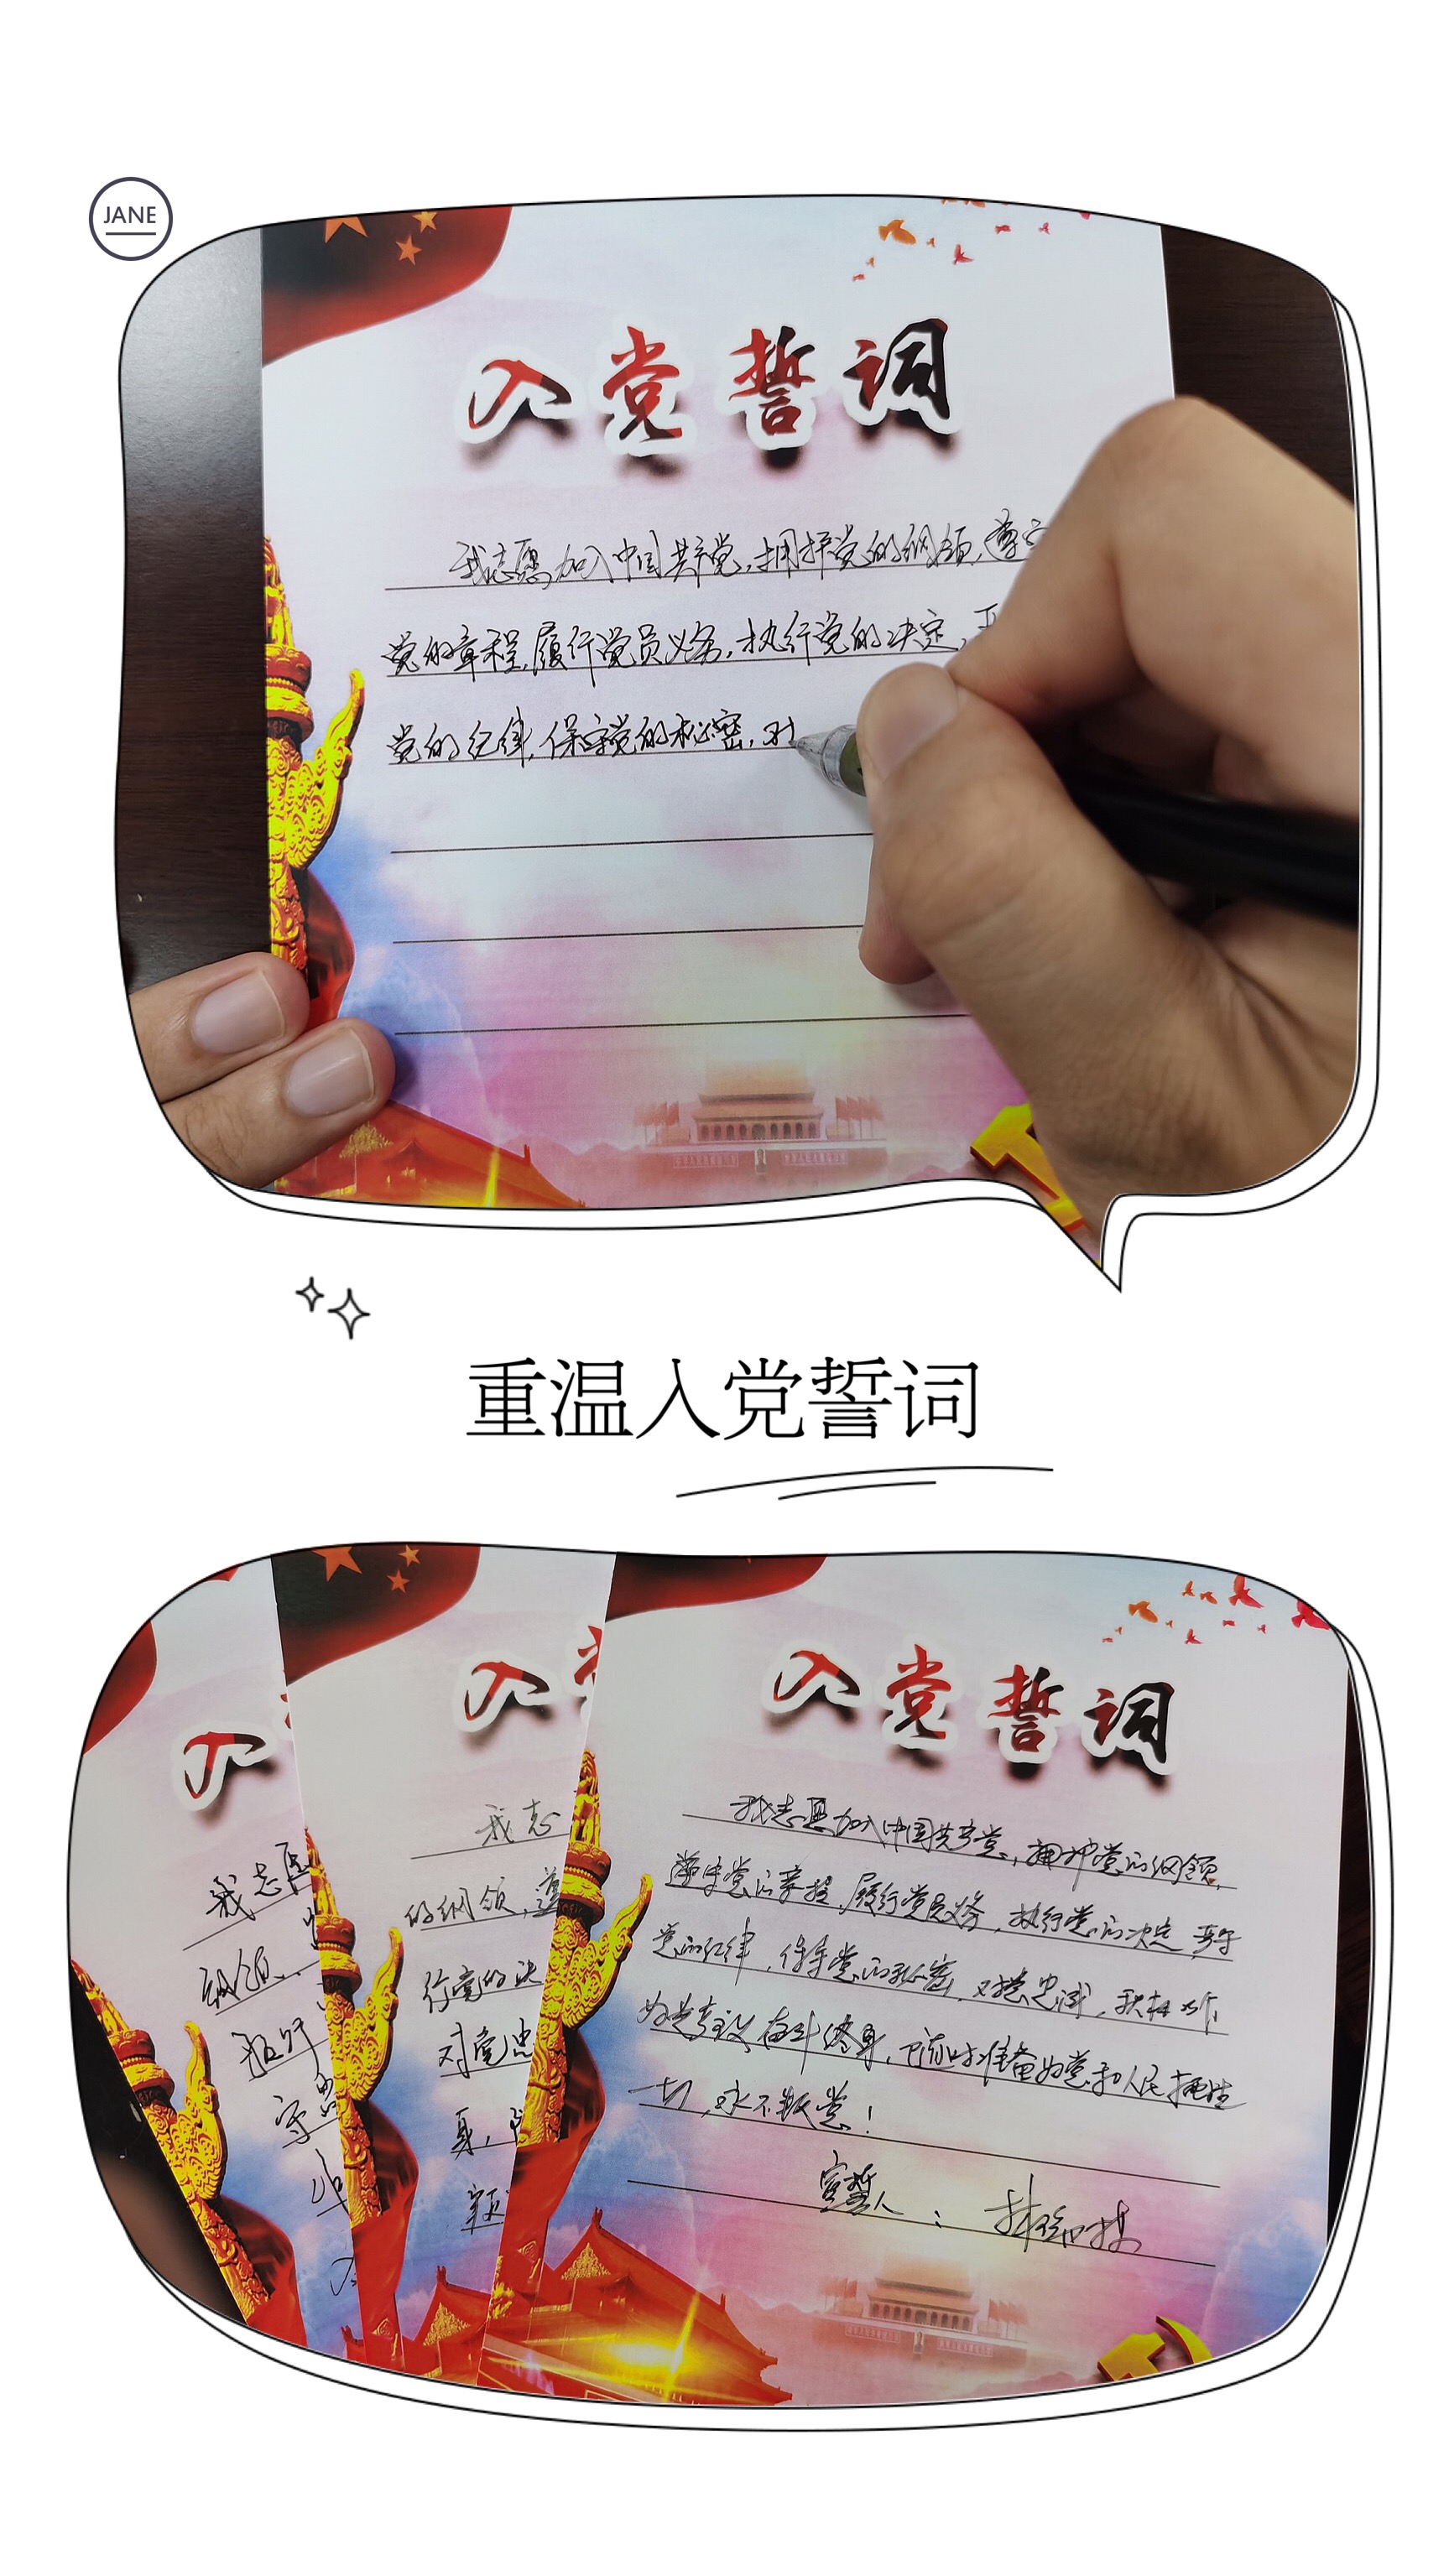 JANE
入党誓词
我志愿加入中国共产党,拥护党的纲领,遵守
党的章程,履行党员义务,执行党的决定,严
党的纪律,保守党的秘密,对
重温入党誓词
入
我志愿
纲领,
执行
守
入
我志
的纲领,遵
行党的决
对党忠
身,
入党誓词
我志愿加入中国共产党,拥护党的纲领,
遵守党的章程,履行党员义务,执行党的决定,严守
党的纪律,保守党的秘密,对党忠诚,积极工作,
为共产主义奋斗终身,随时准备为党和人民牺牲
一切,永不叛党!
宣誓人: